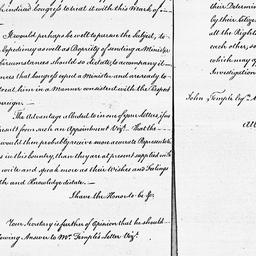 induced Congress to treat it with this Mark of —
It would perhaps be well to pursue the Subject, to
expediency as well as Propriety of sending a Minister
Circumstances should so dictate, to accompany it
ances that Congress expect a Minister and are ready to
receive him in a Manner consistent with the Respect
vereign.
The Advantage alluded to in one of your Letters, if to
result from such an Appointment Viz.t That the
would then probably receive more accurate
in this Country, than they are at present supplied with
write and speak more as their Wishes and Feelings
th and Knowledge dictate.
I have the Honor to be &c.
Your Secretary is further of Opinion that he should
owing Answer to Mr. Temple's Letter Viz.t
their Determin
by their Citizen
all the Right
each other, so
which may of
Investigation
John Temple Esq.r